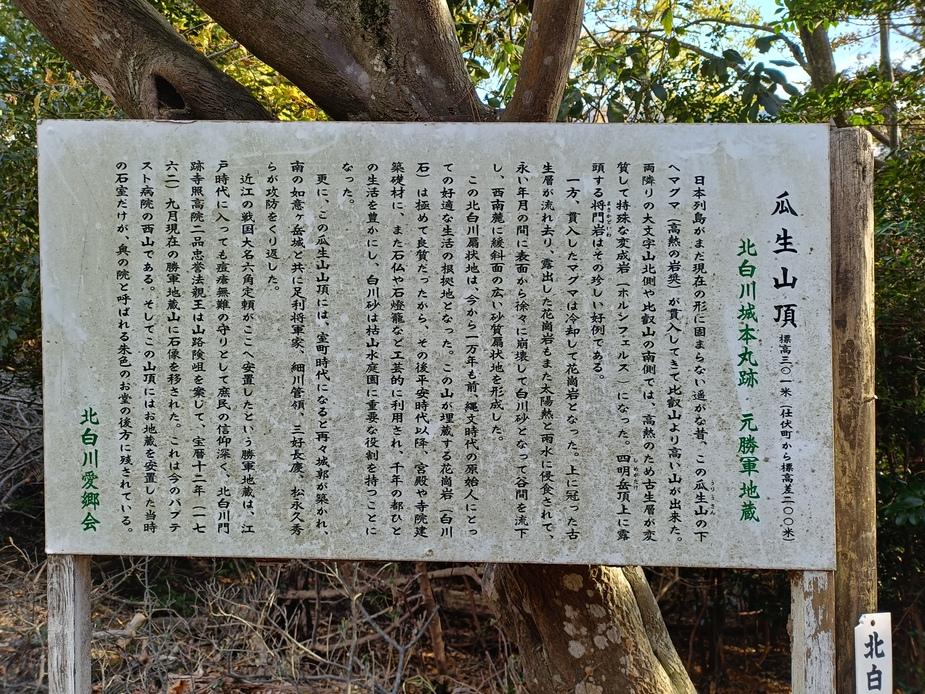 瓜生山頂 標高三〇一米(仕伏町から標高差二〇〇米)
北白川城本丸跡・元勝軍地蔵
日本列島がまだ現在の形に固まらない遥かな昔、この瓜生山の下
へマグマ(高熱の岩奬)が貫入してきて比叡山より高い山が出来た。
両隣りの大文字山北側や比叡山の南側では、高熱のため古生層が変
質して特殊な変成岩(ホルンフェルス)になった。四明岳頂上に露
頭する将門岩はその珍しい好例である。
一方、貫入したマグマは冷却して花崗岩となった。上に冠った古
生層が流れ去り、露出した花崗岩もまた太陽熱と雨水に侵食されて、
永い年月の間に表面から徐々に崩壊して白川砂となって谷間を流下
し、西南麓に緩斜面の広い砂質扇状地を形成した。
この北白川扇状地は、今から一万年も前、縄文時代の原始人にとっ
ての好適な生活の根拠地となった。この山が埋蔵する花崗岩(白川
石)は極めて良質だったから、その後平安時代以降、宮殿や寺院建
築礎材に、また石仏や石燈籠など工芸的に利用され、千年の都ひと
の生活を豊かにし、白川砂は枯山水庭園に重要な役割を持つことに
なった。
更に、この瓜生山山頂には、室町時代になると再々城郭が築かれ、
南の如意ヶ岳城と共に足利将軍家、細川管領、三好長慶、松永久秀
らが攻防をくり返した。
近江の戦国大名六角定頼がここへ安置したという勝軍地蔵は、江
戸時代に入っても痘瘡無難の守りとして庶民の信仰深く、北白川門
跡寺照高院二品忠誉法親王は山路険岨を案して、宝暦十二年(一七
六二)九月現在の勝軍地蔵山に石像を移された。これは今のバプテ
スト病院の西山である。そしてこの山頂にはお地蔵を安置した当時
の石室だけが、奥の院と呼ばれる朱色のお堂の後方に残されている。
北白川愛郷会
北白